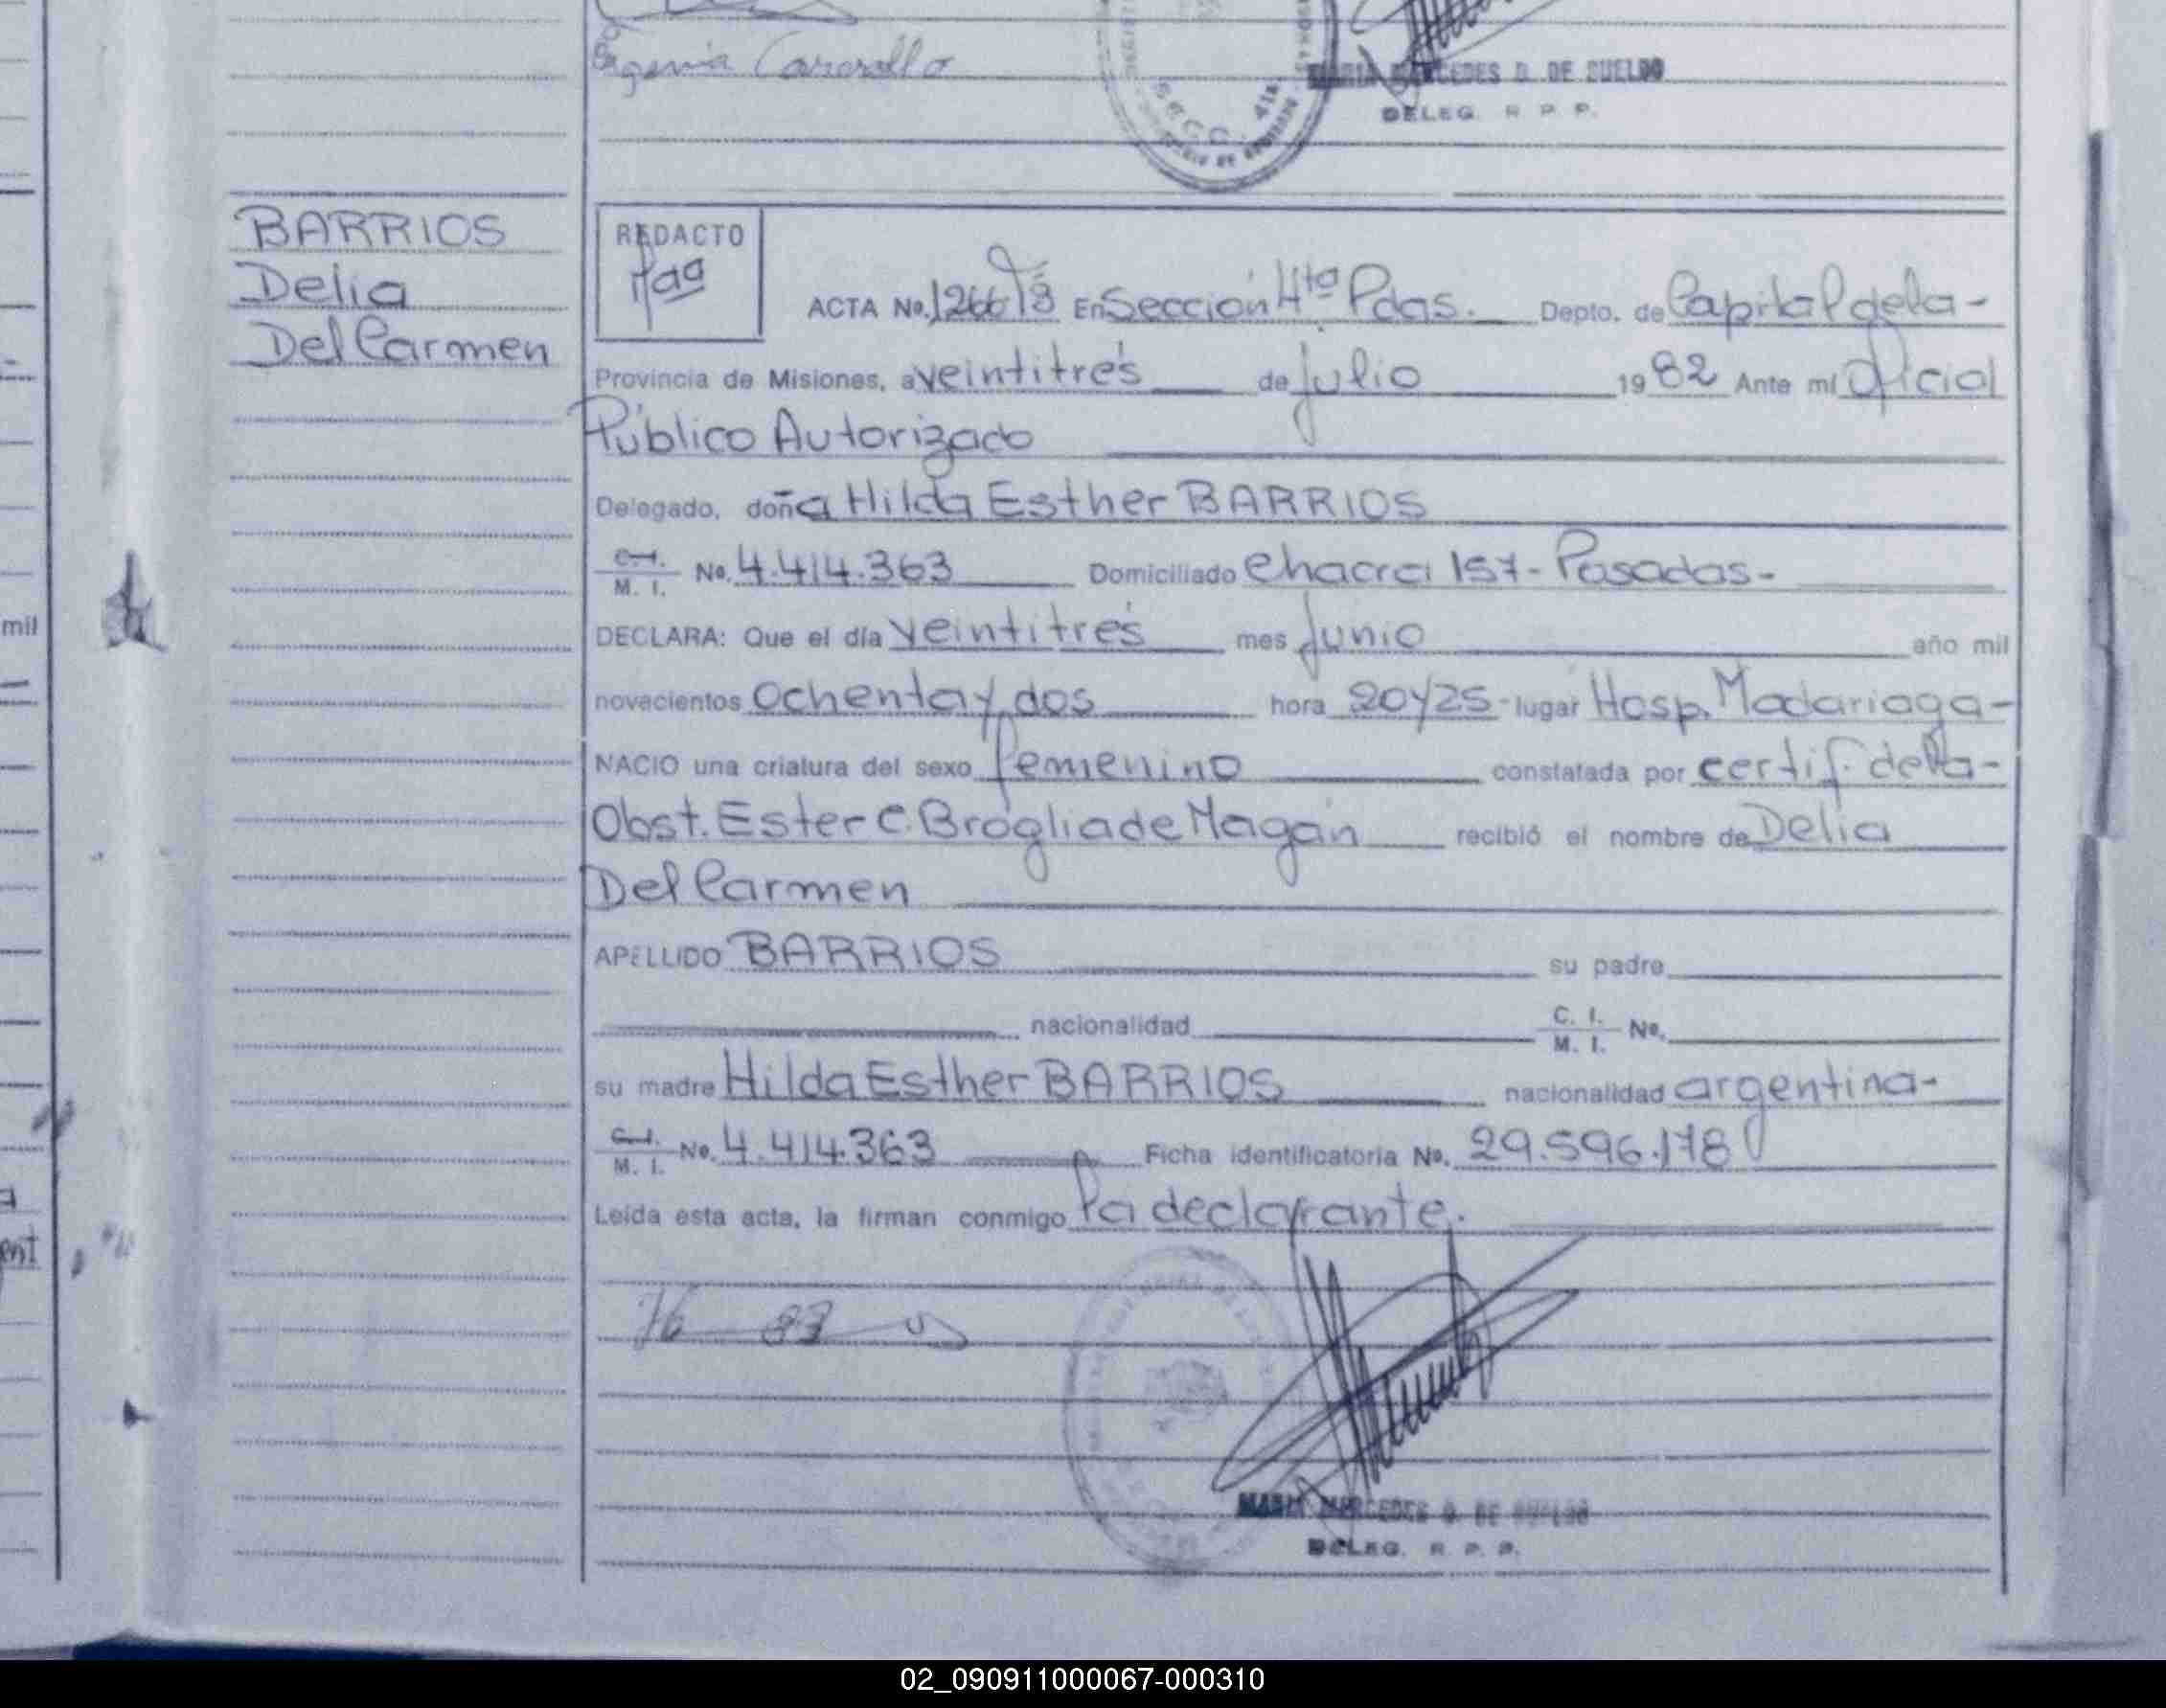 Eugenia Carvallo
MARIA MERCEDES D. DE SUELDO
DELEG. R. P. P.
SECC. 4ta
BARRIOS
Delia
Del Carmen
REDACTO
ACTA No. En Sección 4ta Pdas. Depto. de Capital de la -
Provincia de Misiones, a veintitrés de julio 1982 Ante mí Oficial
Público Autorizado
Delegado, doña Hilda Esther BARRIOS
C. I. M. I. No. 4.414.363 Domiciliado Chacra 157 - Posadas -
mil
DECLARA: Que el día veintitrés mes Junio año mil
novecientos ochenta y dos hora 20 y 25 - lugar Hosp. Madariaga -
NACIO una criatura del sexo femenino constatada por certif. de la -
Obst. Ester C. Broglia de Magán recibió el nombre de Delia
Del Carmen
APELLIDO BARRIOS su padre
nacionalidad C. I. M. I. No.
su madre Hilda Esther BARRIOS nacionalidad argentina -
C. I. M. I. No. 4.414.363 Ficha identificatoria No. 29.596.178
Leída esta acta, la firman conmigo la declarante.
MARIA MERCEDES D. DE SUELDO
DELEG. R. P. P.
02_090911000067-000310